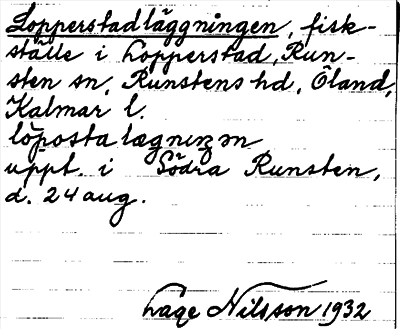 Lopperstadläggningen, fisk-
ställe i Lopperstad, Run-
sten sn, Runstens hd, Öland,
Kalmar l.
lòposta lægnıŋən
uppt. i Södra Runsten,
d. 24 aug.
Lage Nilsson 1932